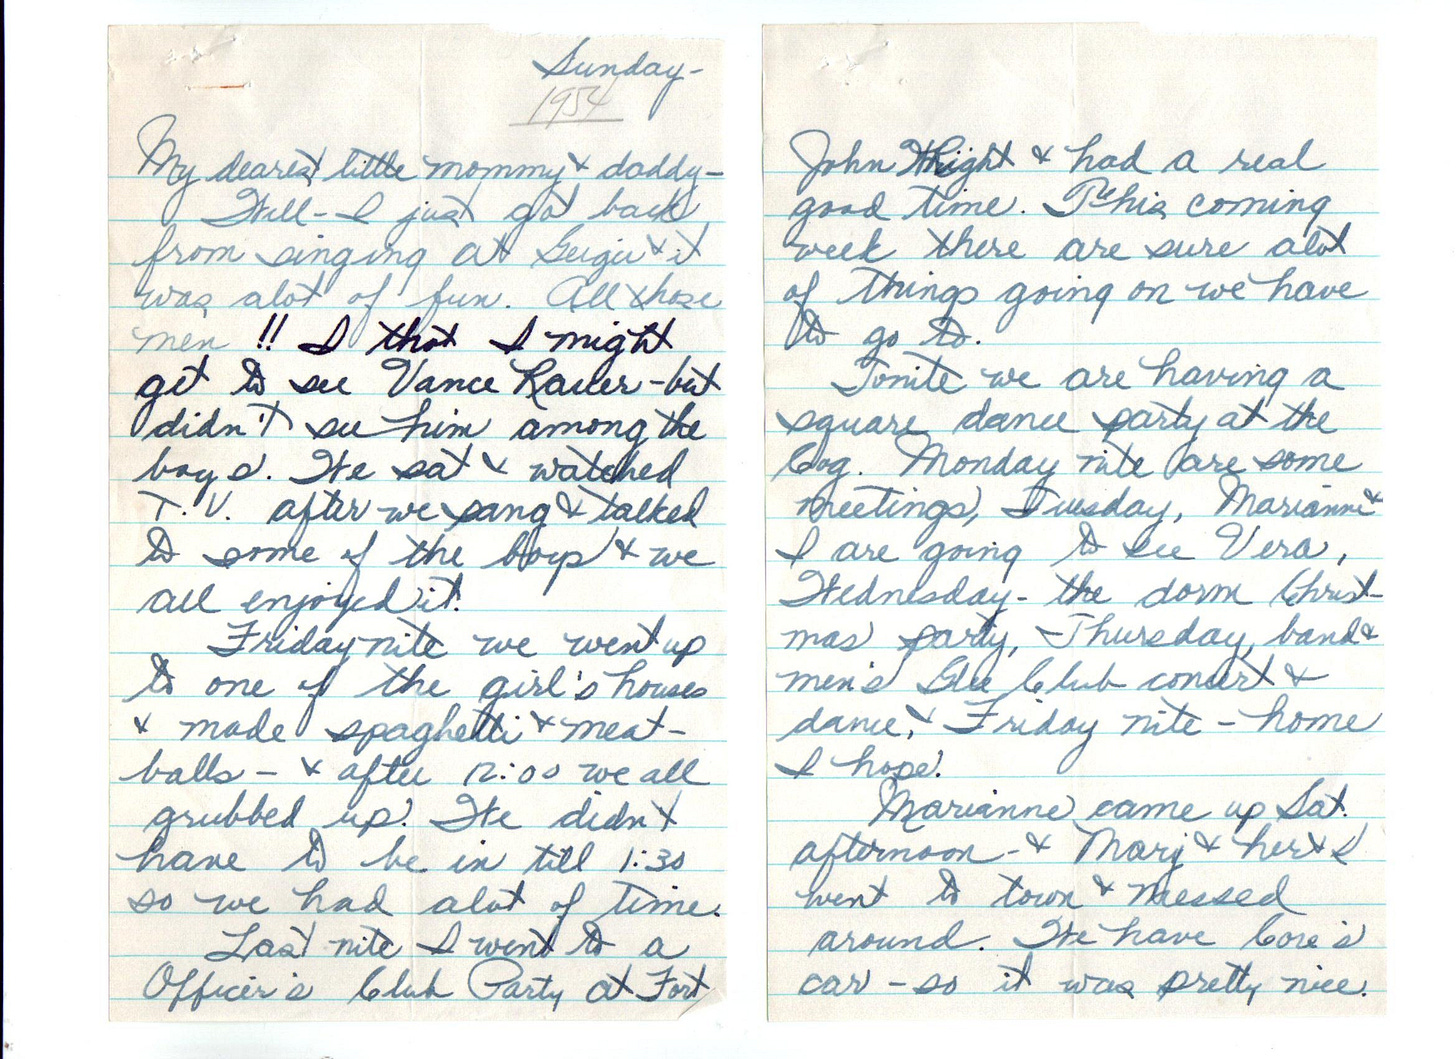 Sunday-
1954
My dearest little mommy & daddy-
Well - I just got back
from singing at Geiger & it
was alot of fun. All those
men !! I thot I might
get to see Vance - but
didn't see him among the
boys. We sat & watched
T.V. after we sang & talked
to some of the boys & we
all enjoyed it!
Friday nite we went up
to one of the girl's houses
& made spaghetti & meat-
balls - & after 12:00 we all
grubbed up! We didn't
have to be in till 1:30
so we had alot of time.
Last nite I went to a
Officer's Club Party at Fort
John Wright & had a real
good time. This coming
week there are sure alot
of things going on we have
to go to.
Tonite we are having a
square dance party at the
Cog. Monday nite are some
meetings, Tuesday, Marianne &
I are going to see Vera,
Wednesday - the dorm Christ-
mas party, Thursday, band &
men's Glee Club concert &
dance, & Friday nite - home
I hope!
Marianne came up Sat.
afternoon - & Marj & her & I
went to town & messed
around. We have Core's
car - so it was pretty nice.